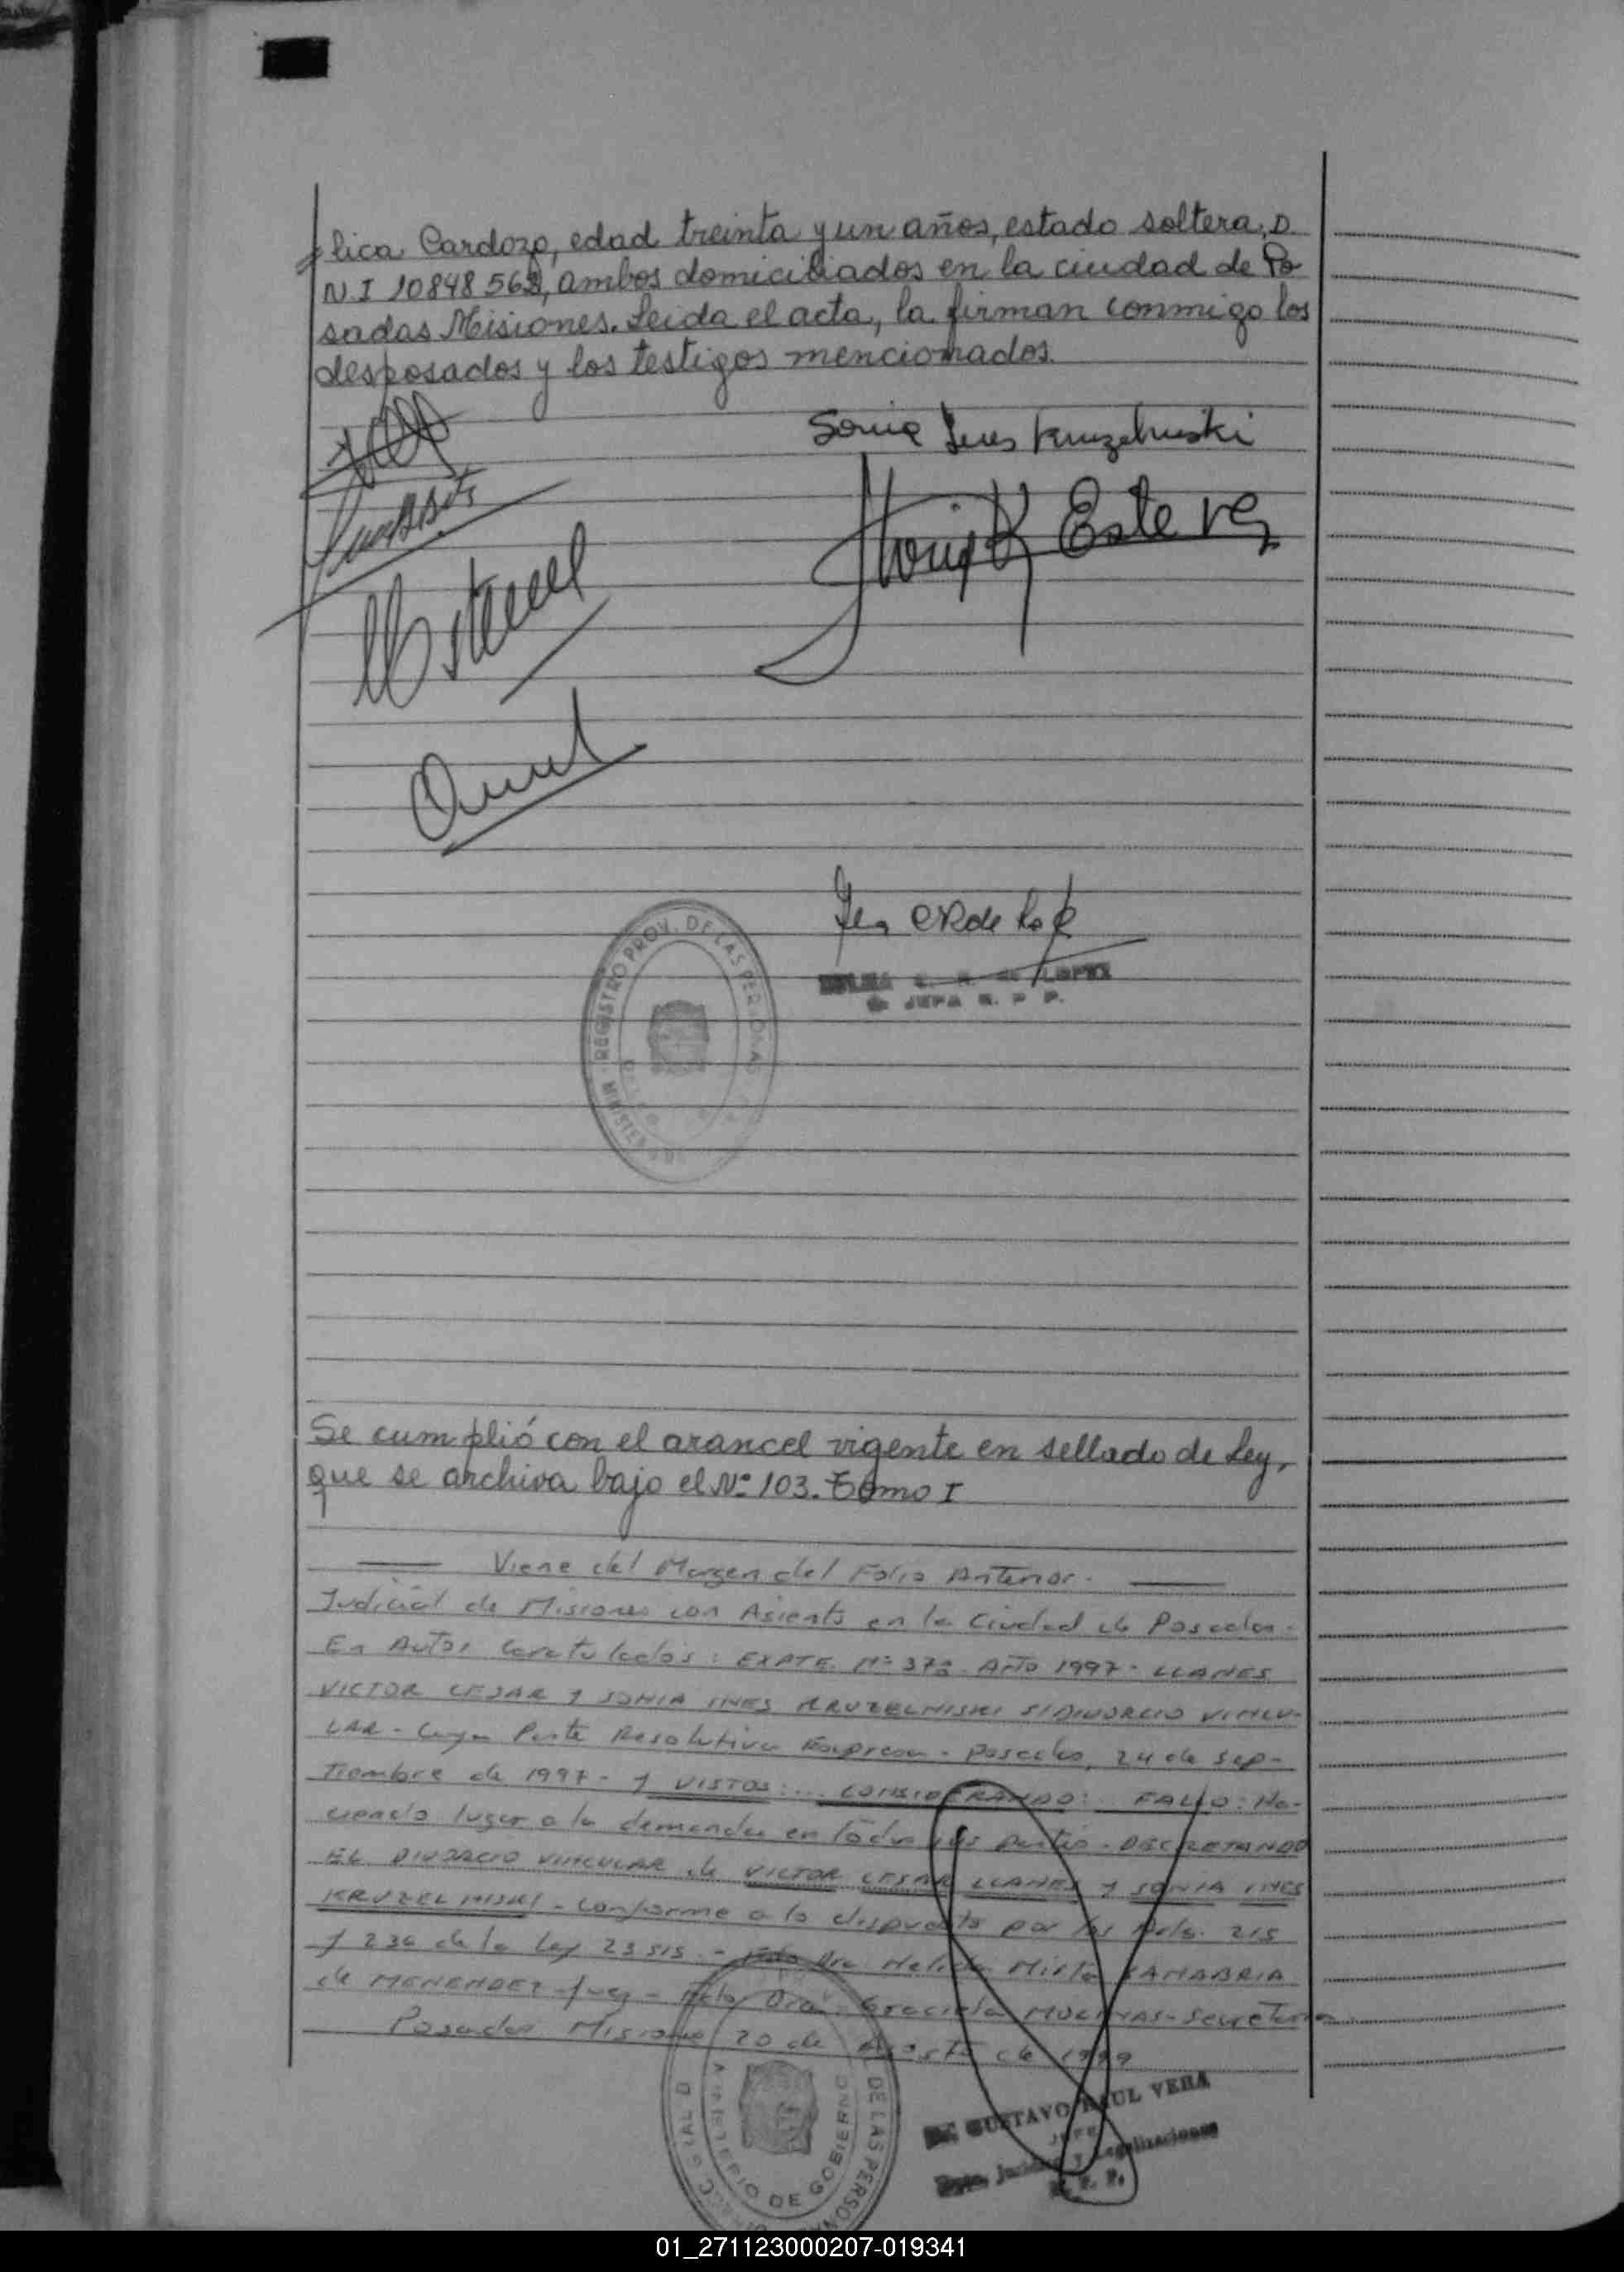 lica Cardozo, edad treinta y un años, estado soltera, D.
N.I 10848562, ambos domiciliados en la ciudad de Po
sadas Misiones. Leida el acta, la firman conmigo los
desposados y los testigos mencionados.
Sonia Ines Kruzelniski
Estevez
REGISTRO PROV. DE LAS PERSONAS
LOPEZ
JEFA R. P. P.
Se cumplió con el arancel vigente en sellado de Ley,
que se archiva bajo el Nº 103. Tomo I
Viene del Margen del Folio Anterior.
Judicial de Misiones con Asiento en la Ciudad de Posadas.
En Autos Caratulados: EXPTE. Nº Año 1997 - LLANES
VICTOR CESAR Y SONIA INES KRUZELNISKI S/DIVORCIO VINCU-
LAR - Cuya Parte Resolutiva Expresa - Posadas, 24 de Sep-
tiembre de 1997 - Y VISTOS: ... CONSIDERANDO: FALLO: Ha-
ciendo lugar a la demanda en todas sus partes - DECRETANDO
EL DIVORCIO VINCULAR de VICTOR CESAR LLANES Y SONIA INES
KRUZELNISKI - Conforme a lo dispuesto por los Arts. 215
y 236 de la Ley 23515. - Fdo Dra Mirta SANABRIA
de MENENDEZ - Juez - Fdo Dra. Graciela MOLINAS - Secretaria
Posadas Misiones 20 de Agosto de 1999
DE LAS PERSONAS
MINISTERIO DE GOBIERNO
GUSTAVO RAUL VERA
JEFE
Dpto. Jurídico y Legalizaciones
R. P. P.
01_271123000207-019341